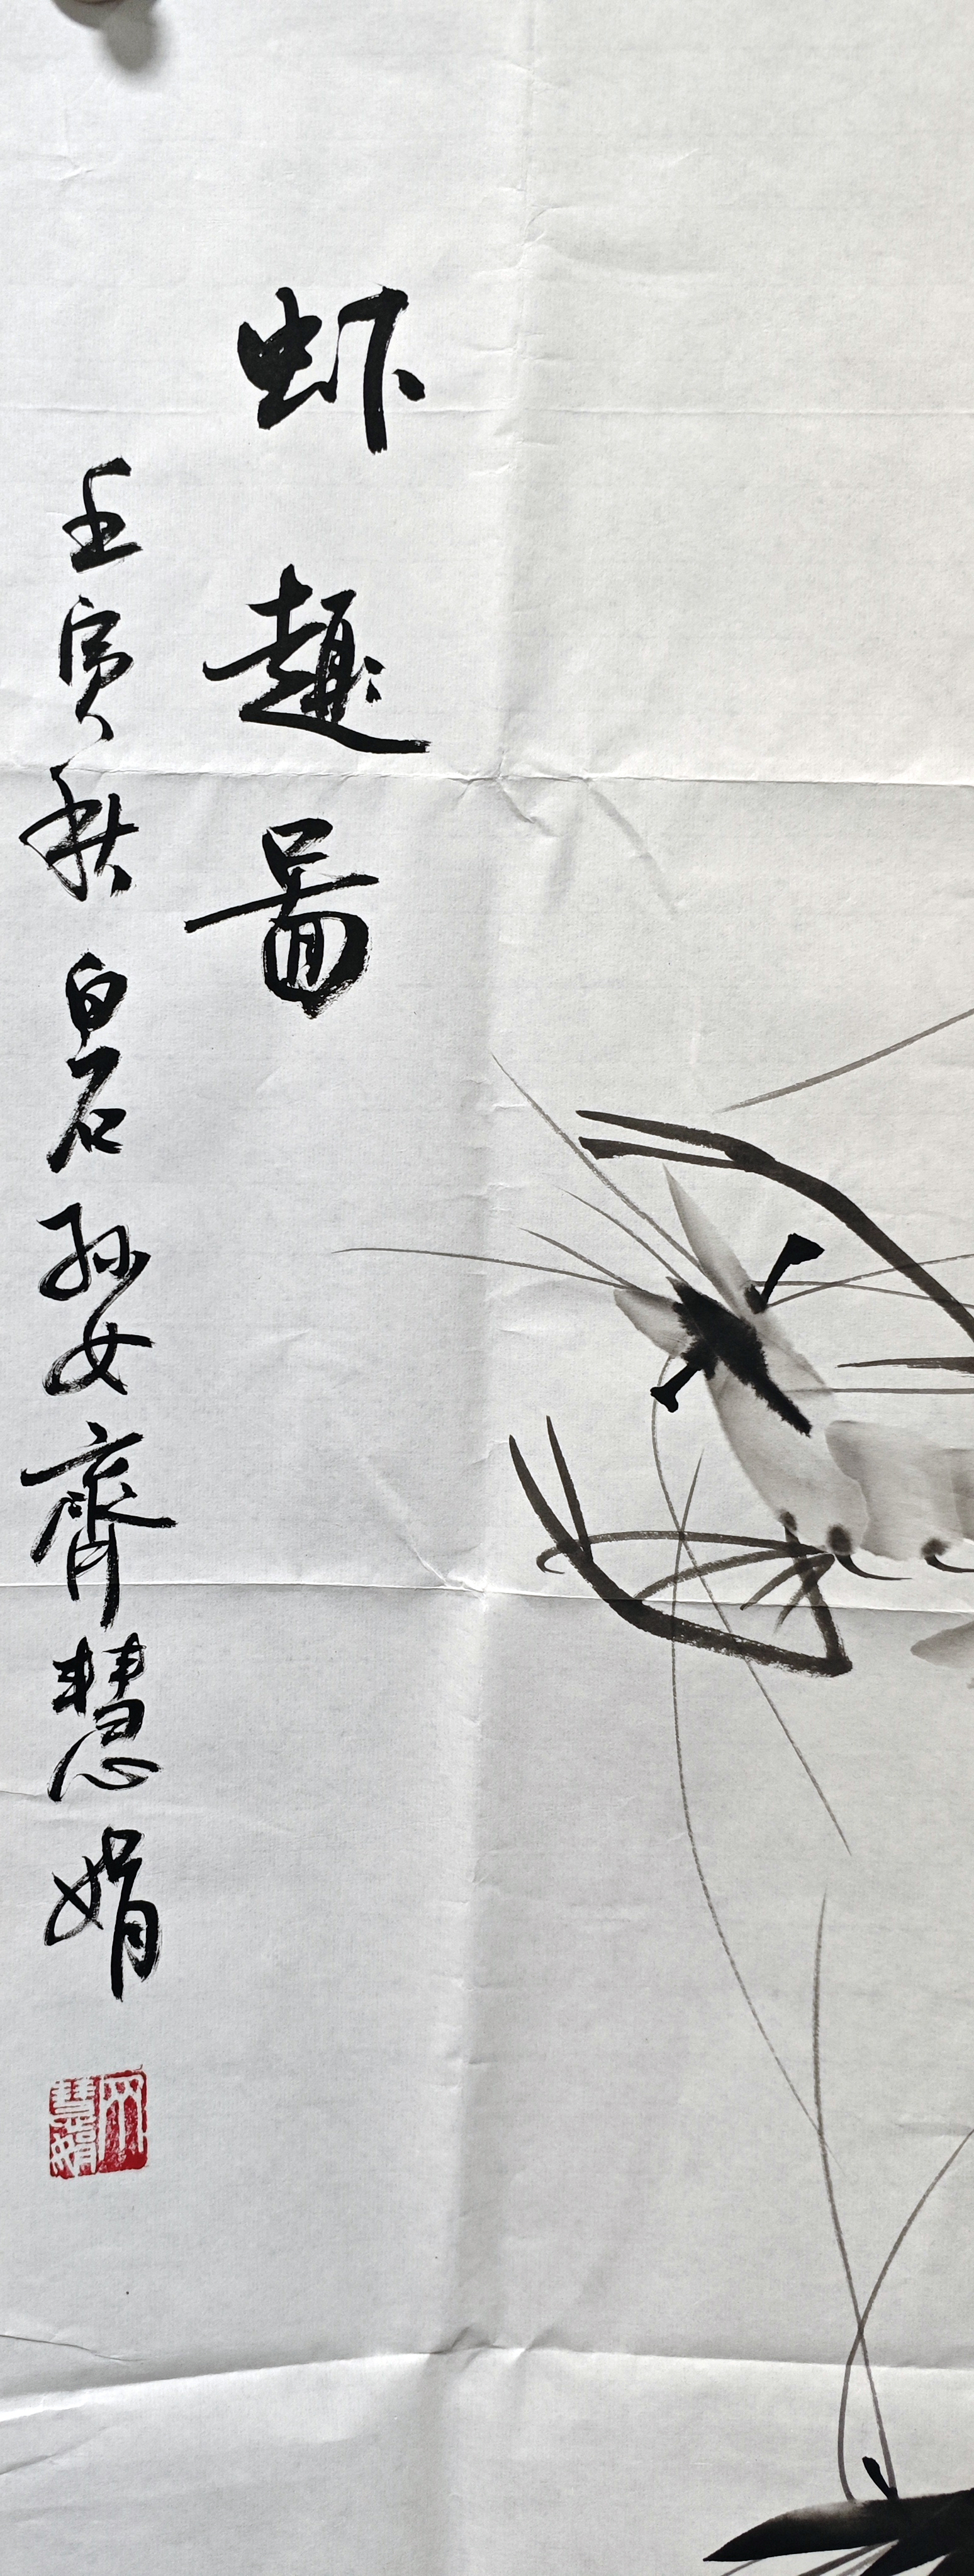 虾趣图
壬寅秋白石孙女齊慧娟
齐慧娟